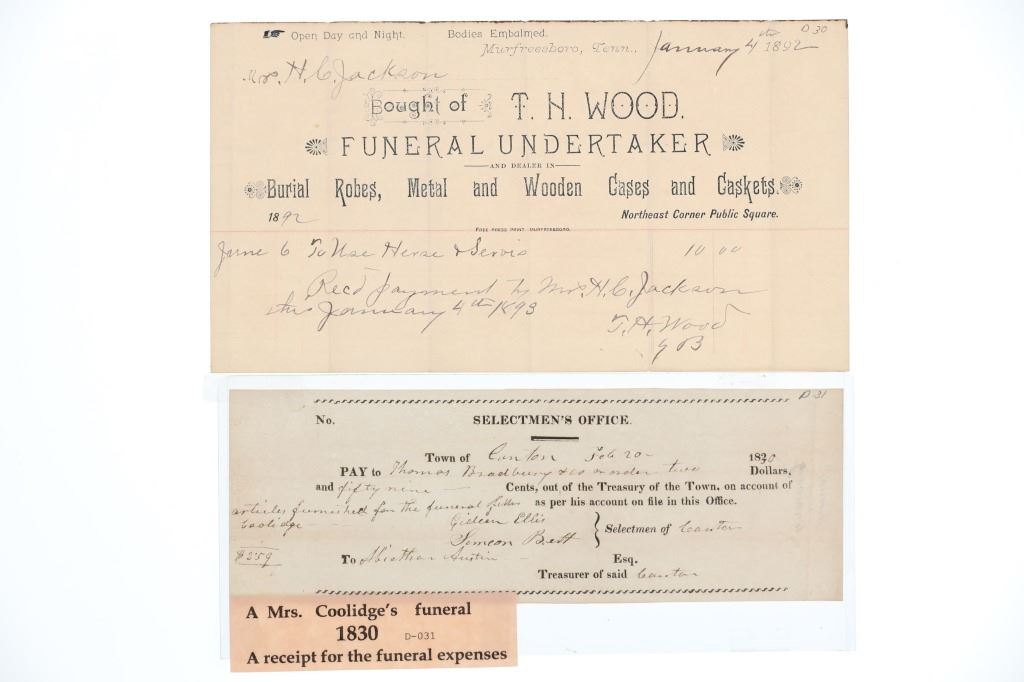 D 30
Open Day and Night. Bodies Embalmed.
Murfreesboro, Tenn., January 4th 1892
Mrs. H. C. Jackson
Bought of T. H. WOOD.
FUNERAL UNDERTAKER
AND DEALER IN
Burial Robes, Metal and Wooden Cases and Caskets.
1892 Northeast Corner Public Square.
FREE PRESS PRINT. MURFREESBORO.
June 6 To Use Herse & Servis 10 00
Rec'd payment by Mrs. H. C. Jackson
this January 4th 1893
T. H. Wood
D 31
No. SELECTMEN'S OFFICE.
Town of Canton Feb 20 1830
PAY to Thomas Bradbury & co or order two Dollars,
and fifty nine Cents, out of the Treasury of the Town, on account of
articles furnished for the funeral of Mrs as per his account on file in this Office.
Coolidge
Gideon Ellis
Simeon Brett } Selectmen of Canton
$2.59
To Abiathar Austin Esq.
Treasurer of said Canton
A Mrs. Coolidge's funeral
1830 D-031
A receipt for the funeral expenses